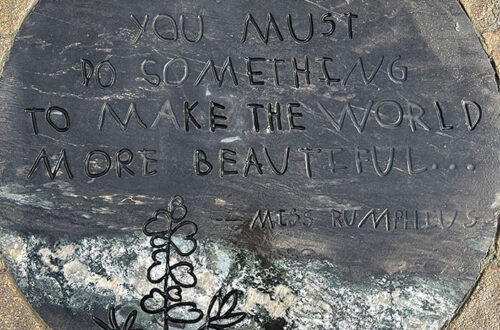 YOU MUST
DO SOMETHING
TO MAKE THE WORLD
MORE BEAUTIFUL...
— MISS RUMPHIUS